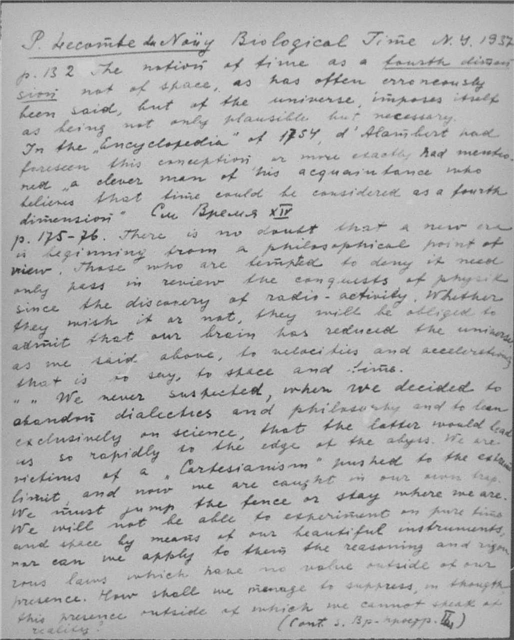 P. Lecomte du Noüy Biological Time N.Y. 1937
p. 132 The notion of time as a fourth dimen
sion not of space, as has often erroneously
been said, but of the universe, imposes itself
as being not only plausible but necessary.
In the „Encyclopedia" of 1754, d'Alambert had
foreseen this conception or more exactly had mentio-
ned „a clever man of his acquaintance who
believes that time could be considered as a fourth
dimension" См Время XIV
p. 175-76. There is no doubt that a new era
is beginning from a philosophical point of
view. Those who are tempted to deny it need
only pass in review the conquests of physik
since the discovery of radio-activity. Whether
they wish it or not, they will be obliged to
admit that our brain has reduced the universe
as we said above, to velocities and accelerations
that is to say, to space and time.
" " We never suspected, when we decided to
abandon dialectics and philosophy and to lean
exclusively on science, that the latter would lead
us so rapidly to the edge of the abyss. We are
victims of a „Cartesianism" pushed to the extreme
limit, and now we are caught in our own trap.
We must jump the fence or stay where we are.
We will not be able to experiment on pure time
and space by means of our beautiful instruments,
nor can we apply to them the reasoning and rigo-
rous laws which have no value outside of our
presence. How shall we manage to suppress, in thought,
this presence outside of which we cannot speak of
reality. (Cont. s. Вр.